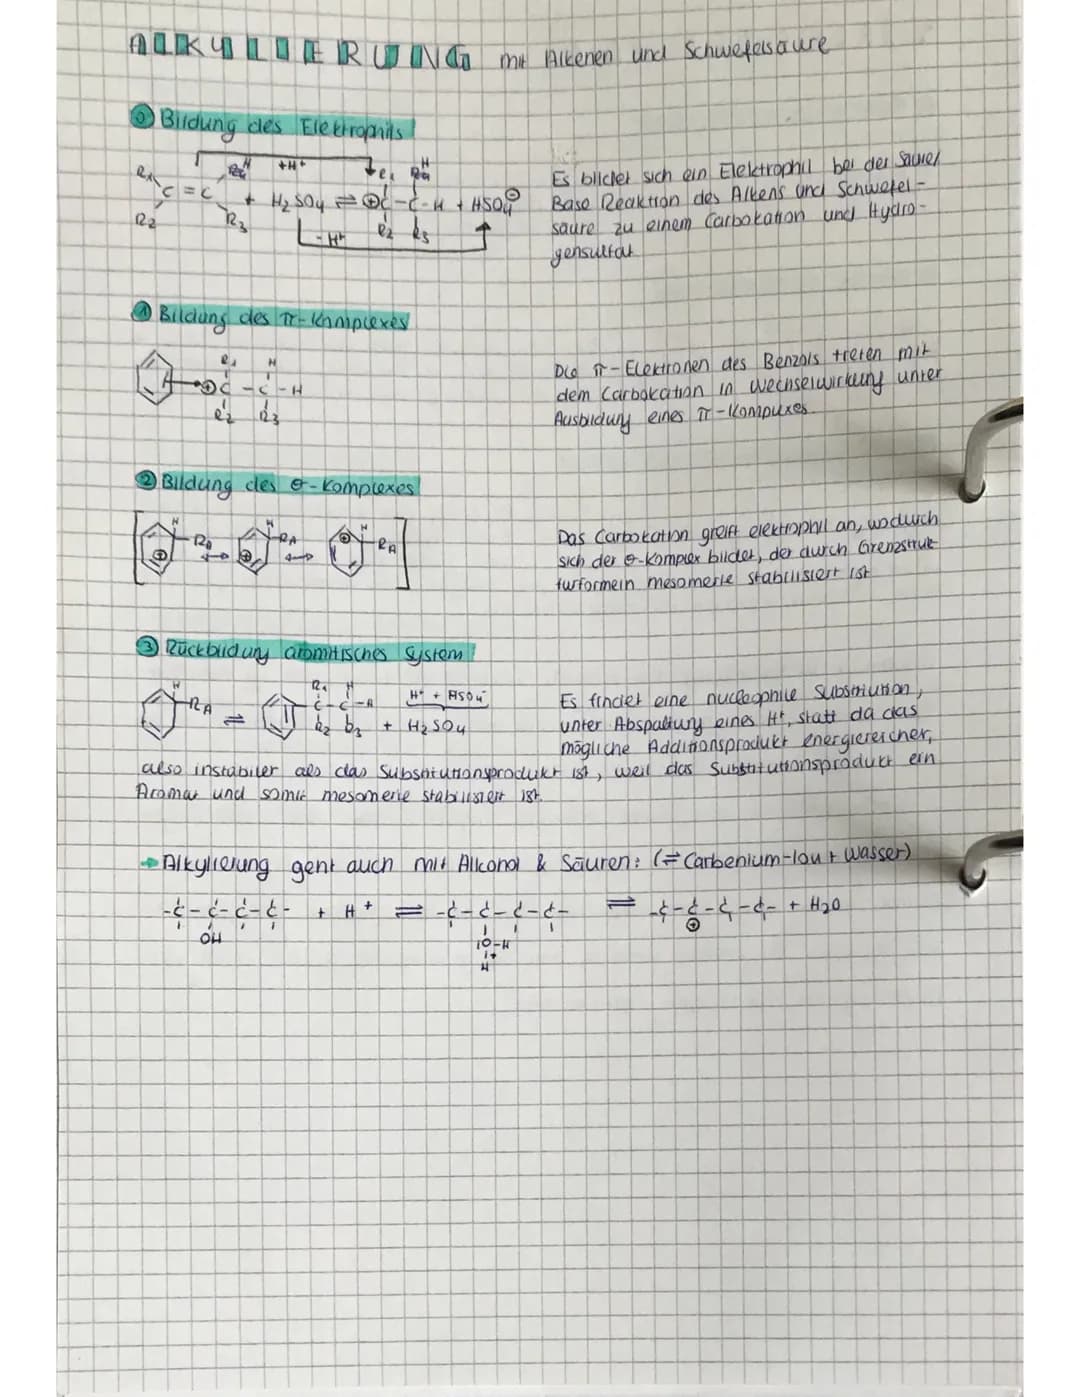 ALKYLIERUNG mit Alkenen und Schwefelsäure
⓪ Bildung des Elektrophils
+H+
R1 H R1 H
C = C + H2SO4 ⇌ ⊕C-C-H + HSO4⊖
R2 R3 R2 R3
-H+
Es bildet sich ein Elektrophil bei der Säure/
Base Reaktion des Alkens und Schwefel-
säure zu einem Carbokation und Hydro-
gensulfat
① Bildung des π-Komplexes
R1 H
⊕C - C - H
R2 R3
Die π-Elektronen des Benzols treten mit
dem Carbokation in Wechselwirkung unter
Ausbildung eines π-Komplexes
② Bildung des σ-Komplexes
H H H
RA ↔ RA ↔ RA
⊕ ⊕ ⊕
Das Carbokation greift elektrophil an, wodurch
sich der σ-Komplex bildet, der durch Grenzstruk
turformeln mesomerie stabilisiert ist
③ Rückbildung aromatisches System
H R1 H H+ + HSO4-
RA ⇌ C-C-H
R2 R3 + H2SO4
Es findet eine nucleophile Substitution,
unter Abspaltung eines H+, statt da das
mögliche Additionsprodukt energiereicher,
also instabiler als das Substitutionsprodukt ist, weil das Substitutionsprodukt ein
Aromat und somit mesomerie stabilisiert ist.
→Alkylierung geht auch mit Alkohol & Säuren: (⇌ Carbenium-Ion + Wasser)
-C-C-C-C- + H+ ⇌ -C-C-C-C- ⇌ -C-C-C-C- + H2O
OH IO-H ⊕
I+
H